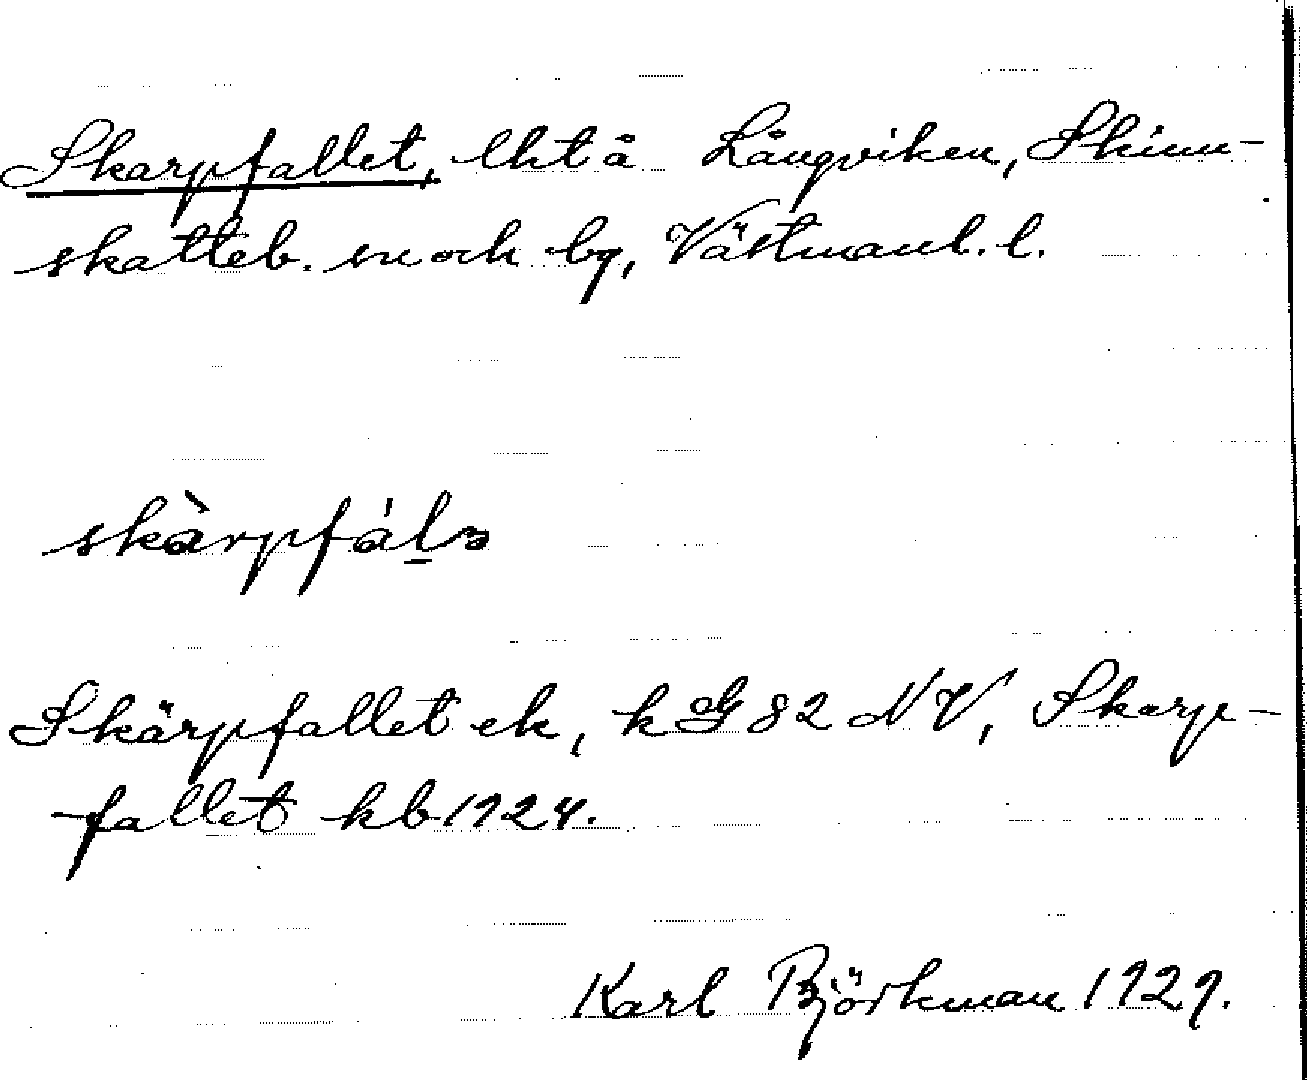 Skarpfallet, lht å Långviken, Skinn-
skatteb. sn och by, Västmanl. l.
skàrpfál̠ə
Skärpfallet ek, k G 82 NV, Skarp-
fallet kb 1924.
Karl Björkman 1929.